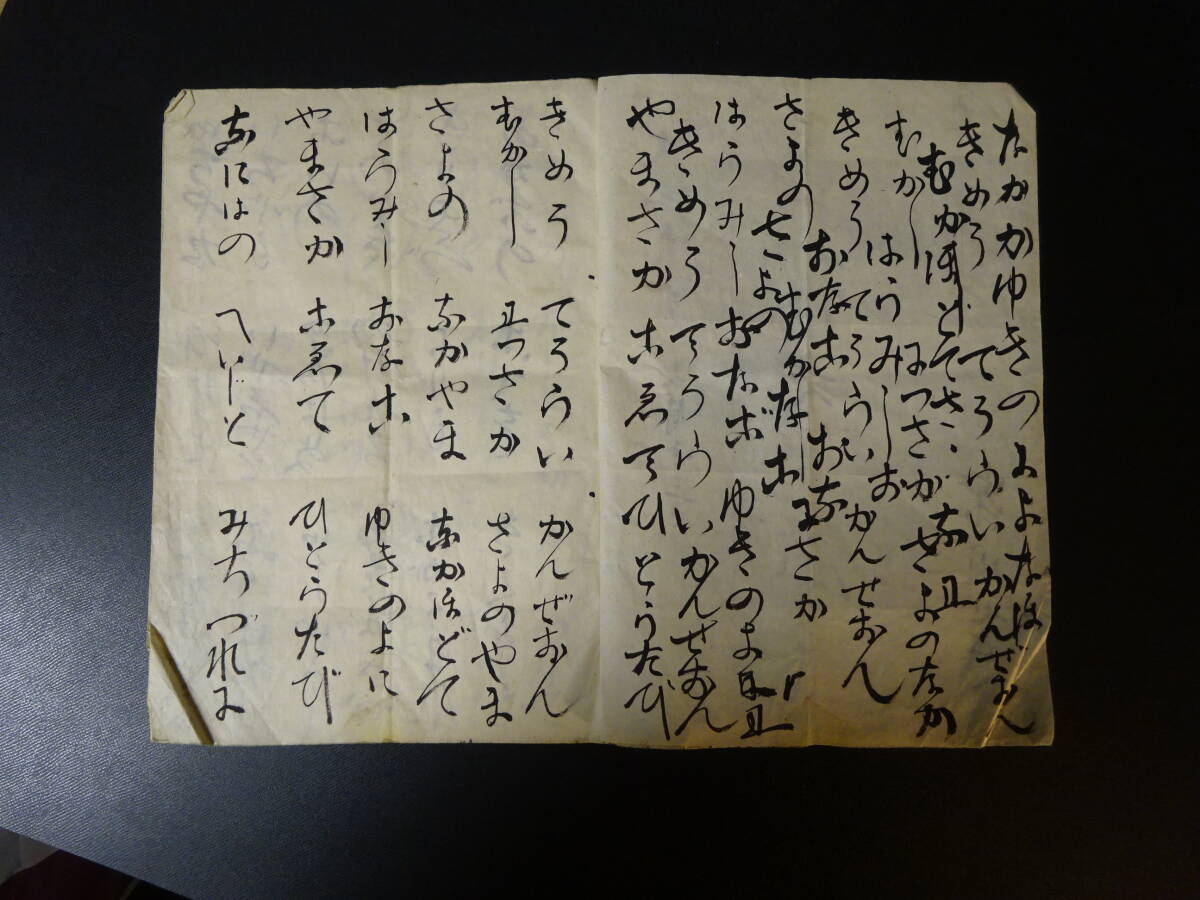 なかかゆきのよよなほ
きめう てうらい かんぜおん
むかほどて
むかし につさか さよのなか
はうみしお
きめう てうらい かんせおん
おなこ おな
さよの
さよの
はうみし おなご ゆきの
きめう てうらい かんぜおん
やまさか こゑて ひとうたび
きめう てうらい かんぜおん
むかし につさか さよのやま
さよの なかやま なかほどて
はうみし おなこ ゆきのよに
やまさか こゑて ひとうたび
なにはの へいじと みちづれに